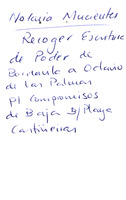 Notaria Mucientes
Recoger Escritura
de Poder de
Baricento a Octavio
de las Palmas
P/ Compromisos
de Baja D/ Playa
Cantiñeras